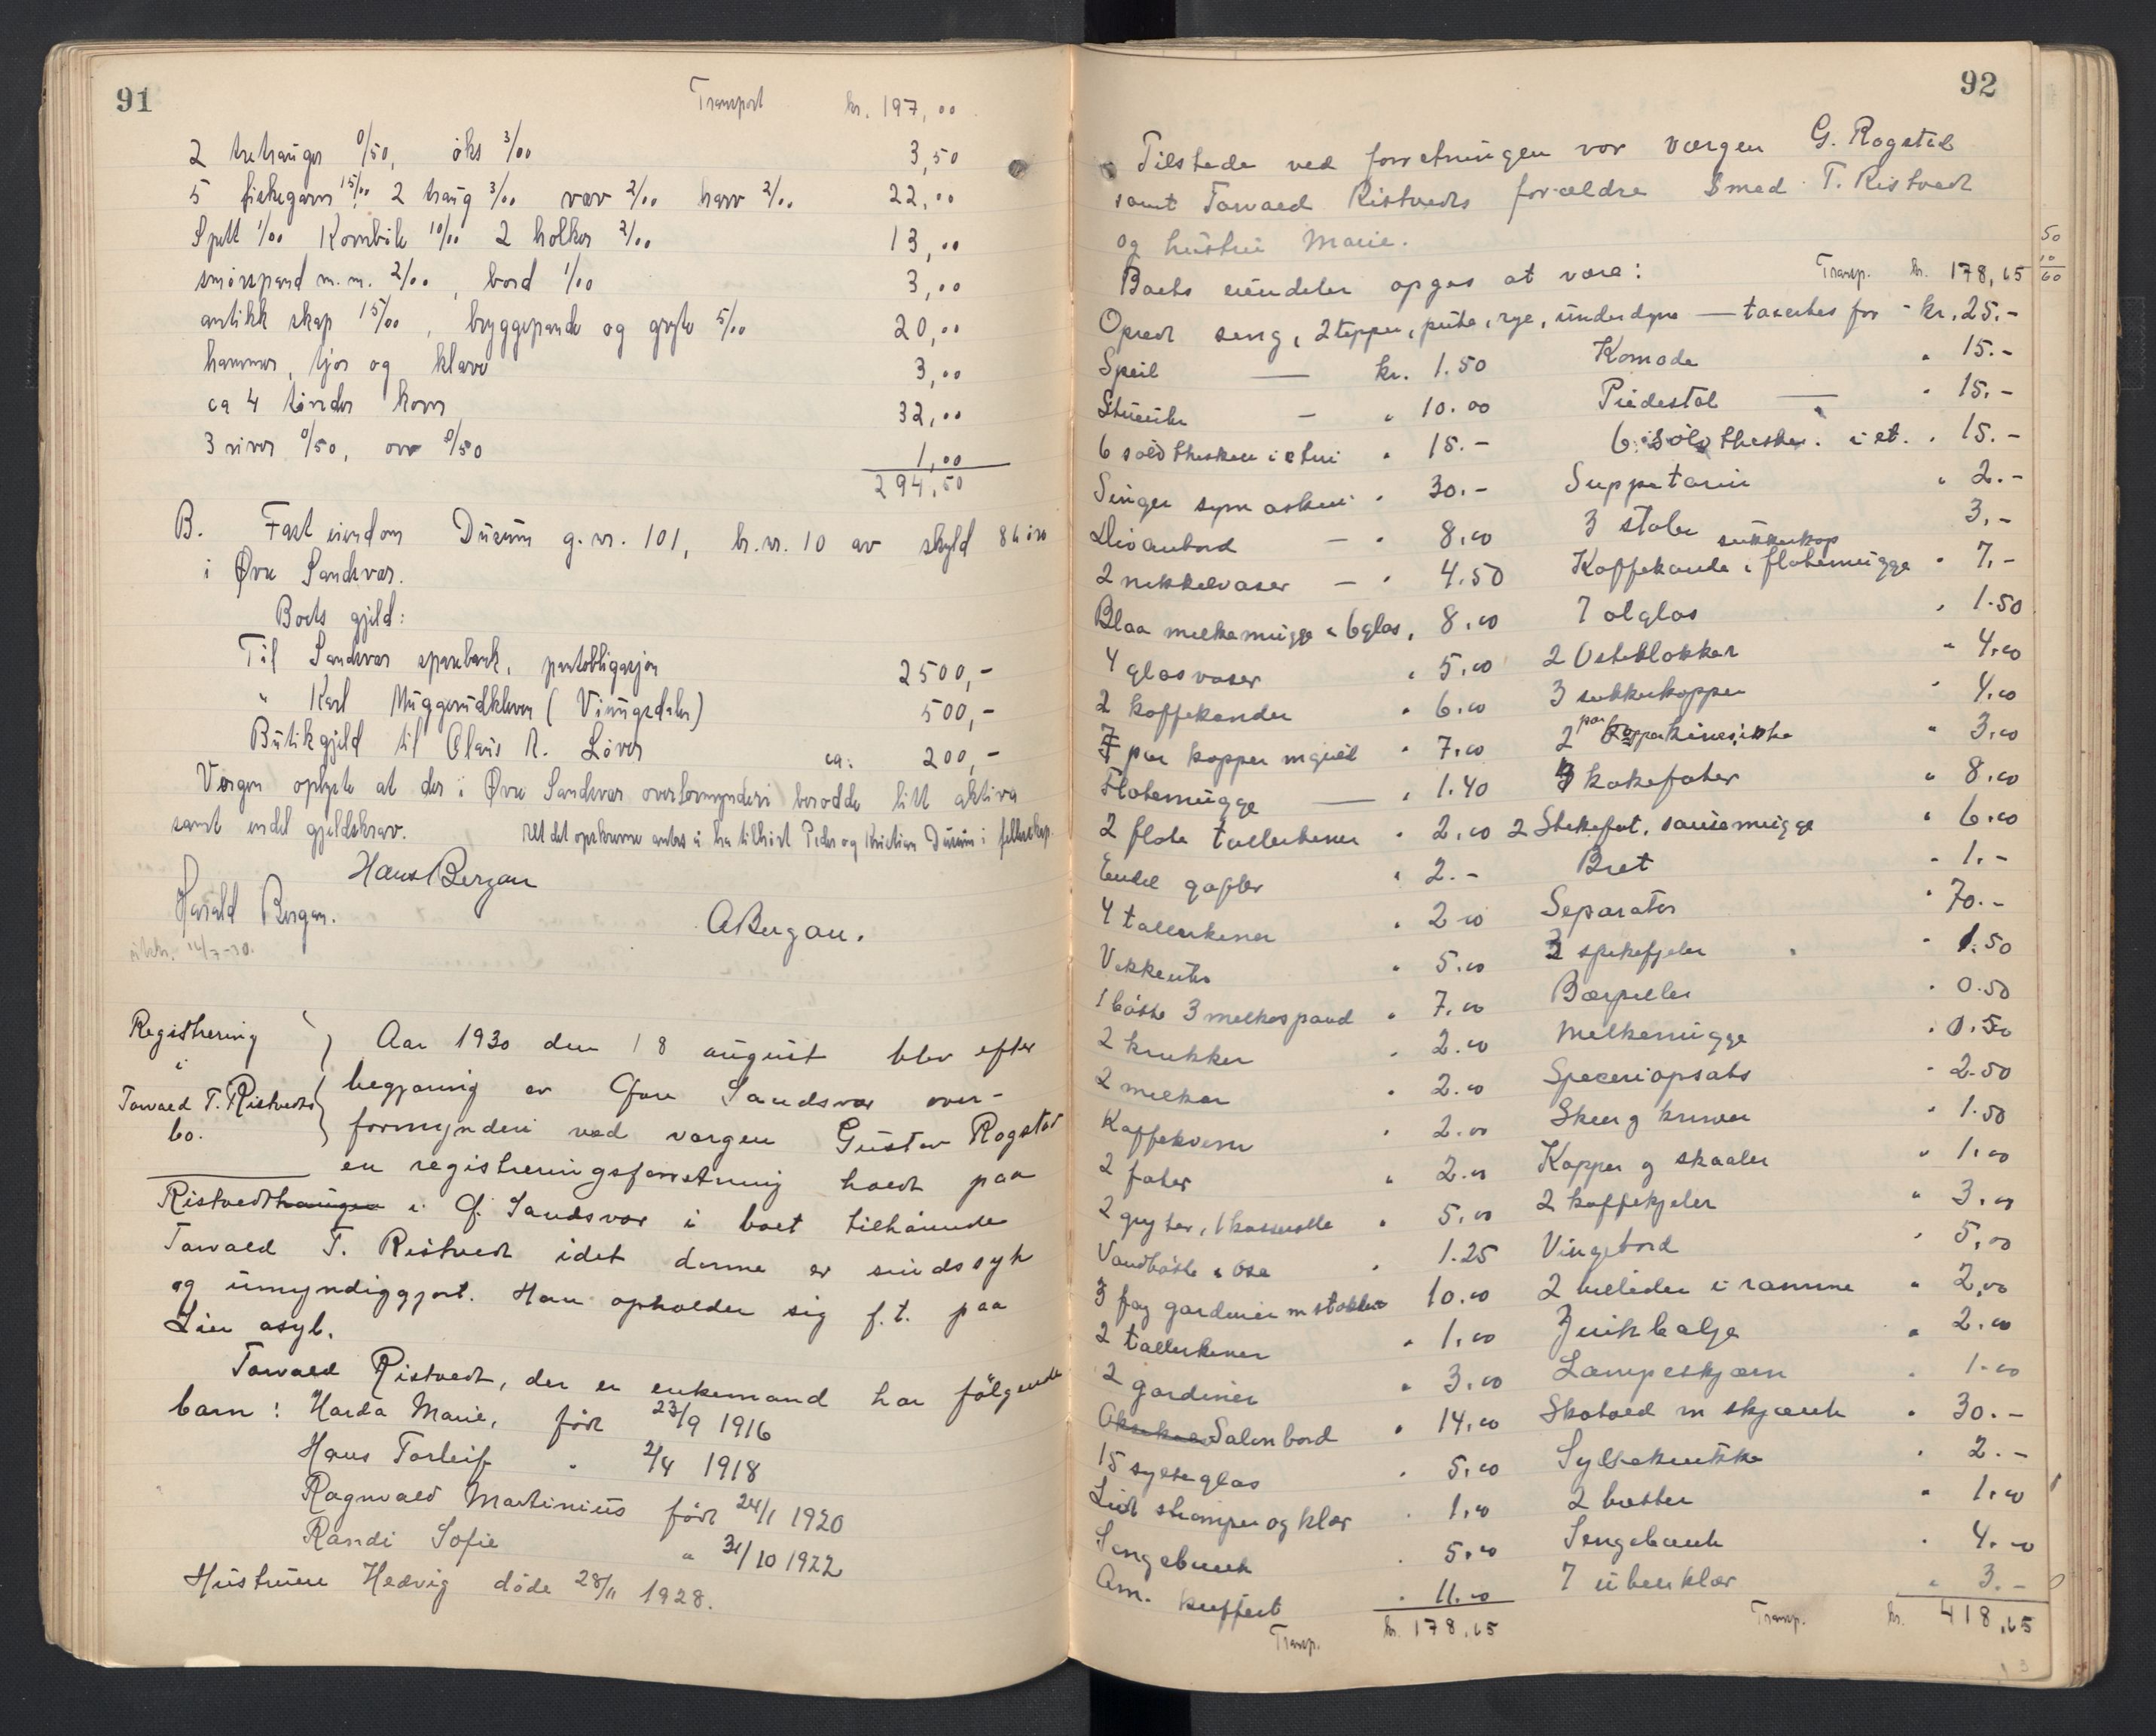 91
Transport kr. 197,00
2 tretrauger 0/50, øks 3/00 3,50
5 fiskegarn 15/00 2 traug 3/00 væv 2/00 harv 2/00 22,00
Spett 1/00 Kornbile 10/00 2 holker 2/00 13,00
smörspand m.m. 2/00, bord 1/00 3,00
antikk skap 15/00, bryggepande og gryte 5/00 20,00
hammer, tjor og klave 3,00
ca 4 tönder korn 32,00
3 river 0/50, orv 0/50 1,00
294,50
B. Fast eiendom Dusum g.nr. 101, br.nr. 10 av skyld 84 öre
i Øvre Sandsvær.
Boets gjeld:
Til Sandsvær sparebank, pantobligasjon 2500,-
" Karl Muggerudkleven ( ) 500,-
Butikgjeld til Olaus R. Löver ca. 200,-
Vergen oplyste at der i Øvre Sandsvær overformynderi berodde litt aktiva
samt endel gjeldskrav. Alt det opskrevne antas å ha tilhört Peder og Kristian Dusum i felleskap.
Hans Bergan
Harald Bergan. A Bergan.
utskr. 14/7-30.
Registrering
i
Torvald T. Ristvedts
bo.
Aar 1930 den 18 august blev efter
begjæring av Øvre Sandsvær over-
formynderi ved vergen Gustav Rogstad
en registreringsforretning holdt paa
Ristvedthaugen i Ø. Sandsvær i boet tilhörende
Torvald T. Ristvedt idet denne er sindssyk
og umyndiggjort. Han opholder sig f.t. paa
Lier asyl.
Torvald Ristvedt, der er enkemand har fölgende
barn: Harda Marie, född 23/9 1916
Hans Torleif " 2/4 1918
Ragnvald Martinius född 24/1 1920
Randi Sofie " 31/10 1922
Hustruen Hedvig döde 28/11 1928.
92
Tilstede ved forretningen var vergen G. Rogstad
samt Torvald Ristvedts forældre Smed T. Ristvedt
og hustru Marie.
50
10
60
Boets eiendeler opgis at være: Transp. kr. 178,65
Opredt seng, 2 tepper, pute, rye, underdyne — taxertes for - kr. 25.-
Speil — kr. 1.50 Komode " 15.-
Stueur - " 10.00 Piedestal — " 15.-
6 sölvtheskeer i etui " 15.- 6 sölvtheskeer i et. " 15.-
Singer symaskin " 30.- Suppeterrin " 2.-
Divanbord - " 8.00 3 stoler 3.-
2 nikkelvaser - " 4.50 Kaffekande, flötemugge sukkerkop " 7.-
Blaa melkemugge & 6 glas, 8.00 7 ölglas " 1.50
4 glasvaser " 5.00 2 Osteklokker " 4.00
2 kaffekander " 6.00 3 sukkerkopper " 4.00
7 par kopper m guld " 7.00 2 par kopper kinesiske " 3.00
Flötemugge — " 1.40 3 kakefater " 8.00
2 flate tallerkener " 2.00 2 Stekefat, sausemugge " 6.00
Endel gafler " 2.- Bret " 1.-
4 tallerkener " 2 00 Separator " 70.-
Vekkerur " 5.00 3 spekefjeler " 1.50
1 bötte 3 melkespand " 7.00 Bærpiller " 0.50
2 krukker " 2.00 Melkemugge " 0.50
2 melkar " 2.00 Speceriopsats " 2.50
Kaffekvern " 2.00 Skeer og kniver " 1.50
2 fater " 2.00 Kopper og skaaler " 1.00
2 gryter, 1 kasserolle " 5.00 2 kaffekjeler " 3.00
Vandbötte & öse " 1.25 Vingebord " 5.00
3 fag gardiner m stokker 10.00 2 billeder i ramme " 2.00
2 tallerkener " 1.00 Zinkbalje " 2.00
2 gardiner " 3.00 Lampeskjærm " 1.00
Salonbord " 14.00 Skatoll m skjænk " 30.-
15 sylteglas " 5.00 Syltekrukke " 2.-
Lidt strömper og klær " 1.00 2 bötter " 1.00
Sengebænk " 5.00 Sengebænk " 4.00
Am. kuffert " 11.00 7 uldenklær " 3.-
Transp. kr. 178,65 Transp. kr. 418,65